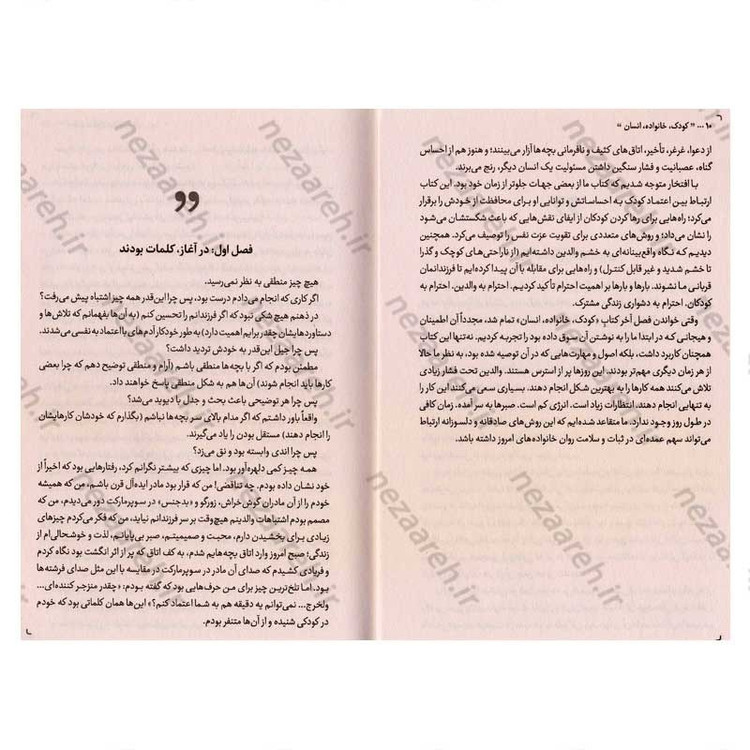 ۱۰ ... " کودک، خانواده، انسان "
از دعوا، غرغر، تأخیر، اتاق‌های کثیف و نافرمانی بچه‌ها آزار می‌بینند؛ و هنوز هم از احساس
گناه، عصبانیت و فشار سنگین داشتن مسئولیت یک انسان دیگر، رنج می‌برند.
با افتخار متوجه شدیم که کتاب ما از بعضی جهات جلوتر از زمان خود بود. این کتاب
ارتباط بین اعتماد کودک به احساساتش و توانایی او برای محافظت از خودش را برقرار
می‌کرد؛ راه‌هایی برای رها کردن کودکان از ایفای نقش‌هایی که باعث شکستشان می‌شود
را نشان می‌داد؛ و روش‌های متعددی برای تقویت عزت نفس را توصیف می‌کرد. همچنین
دیدیم که نگاه واقع‌بینانه‌ای به خشم والدین داشته‌ایم (از ناراحتی‌های کوچک و گذرا
تا خشم شدید و غیر قابل کنترل) و راه‌هایی برای مقابله با آن پیدا کرده‌ایم تا فرزندانمان
قربانی ما نشوند. بارها و بارها بر اهمیت احترام تأکید کردیم. احترام به والدین. احترام به
کودکان. احترام به دشواری زندگی مشترک.
وقتی خواندن فصل آخر کتاب «کودک، خانواده، انسان» تمام شد، مجدداً آن اطمینان
و هیجانی که در ابتدا ما را به نوشتن آن سوق داده بود را تجربه کردیم. نه‌تنها این کتاب
همچنان کاربرد داشت، بلکه اصول و مهارت‌هایی که در آن توصیه شده بود، به نظر ما حالا
از هر زمان دیگری مهم‌تر بودند. این روزها پر از استرس هستند. والدین تحت فشار زیادی
تلاش می‌کنند همه کارها را به بهترین شکل انجام دهند. بسیاری سعی می‌کنند این کار را
به تنهایی انجام دهند. انتظارات زیاد است. انرژی کم است. صبرها به سر آمده. زمان کافی
در طول روز وجود ندارد. ما متقاعد شده‌ایم که این روش‌های صادقانه و دلسوزانه ارتباط
می‌تواند سهم عمده‌ای در ثبات و سلامت روان خانواده‌های امروز داشته باشد.
فصل اول: در آغاز، کلمات بودند
هیچ چیز منطقی به نظر نمی‌رسید.
اگر کاری که انجام می‌دادم درست بود، پس چرا این‌قدر همه چیز اشتباه پیش می‌رفت؟
در ذهنم هیچ شکی نبود که اگر فرزندانم را تحسین کنم (به آن‌ها بفهمانم که تلاش‌ها و
دستاوردهایشان چقدر برایم اهمیت دارد) به طور خودکار آدم‌های با اعتماد به نفسی می‌شدند.
پس چرا جیل این‌قدر به خودش تردید داشت؟
مطمئن بودم که اگر با بچه‌ها منطقی باشم (آرام و منطقی توضیح دهم که چرا بعضی
کارها باید انجام شوند) آن‌ها هم به شکل منطقی پاسخ خواهند داد.
پس چرا هر توضیحی باعث بحث و جدل با دیوید می‌شد؟
واقعاً باور داشتم که اگر مدام بالای سر بچه‌ها نباشم (بگذارم که خودشان کارهایشان
را انجام دهند) مستقل بودن را یاد می‌گیرند.
پس چرا اندی وابسته بود و نق می‌زد؟
همه چیز کمی دلهره‌آور بود. اما چیزی که بیشتر نگرانم کرد، رفتارهایی بود که اخیراً از
خود نشان داده بودم. چه تناقضی! من که قرار بود مادر ایده‌آل قرن باشم، من که همیشه
خودم را از آن مادران گوش خراش، زورگو و «بدجنس» در سوپرمارکت دور می‌دیدم، من که
مصمم بودم اشتباهات والدینم هیچ‌وقت بر سر فرزندانم نیاید، من که فکر می‌کردم چیزهای
زیادی برای بخشیدن دارم، محبت و صمیمیتم، صبر بی‌پایانم، لذت و خوشحالی‌ام از
زندگی؛ صبح امروز وارد اتاق بچه‌هایم شدم، به کف اتاق که پر از اثر انگشت بود نگاه کردم
و فریادی کشیدم که صدای آن مادر در سوپرمارکت در مقایسه با این مثل صدای فرشته‌ها
بود. اما تلخ‌ترین چیز برای من حرف‌هایی بود که گفته بودم: «چقدر منزجر کننده‌ای...
ولخرج... نمی‌توانم یه دقیقه هم به شما اعتماد کنم؟» این‌ها همان کلماتی بود که خودم
در کودکی شنیده و از آن‌ها متنفر بودم.
nezaareh.ir
nezaareh.ir
nezaareh.ir
nezaareh.ir
nezaareh.ir
nezaareh.ir
nezaareh.ir